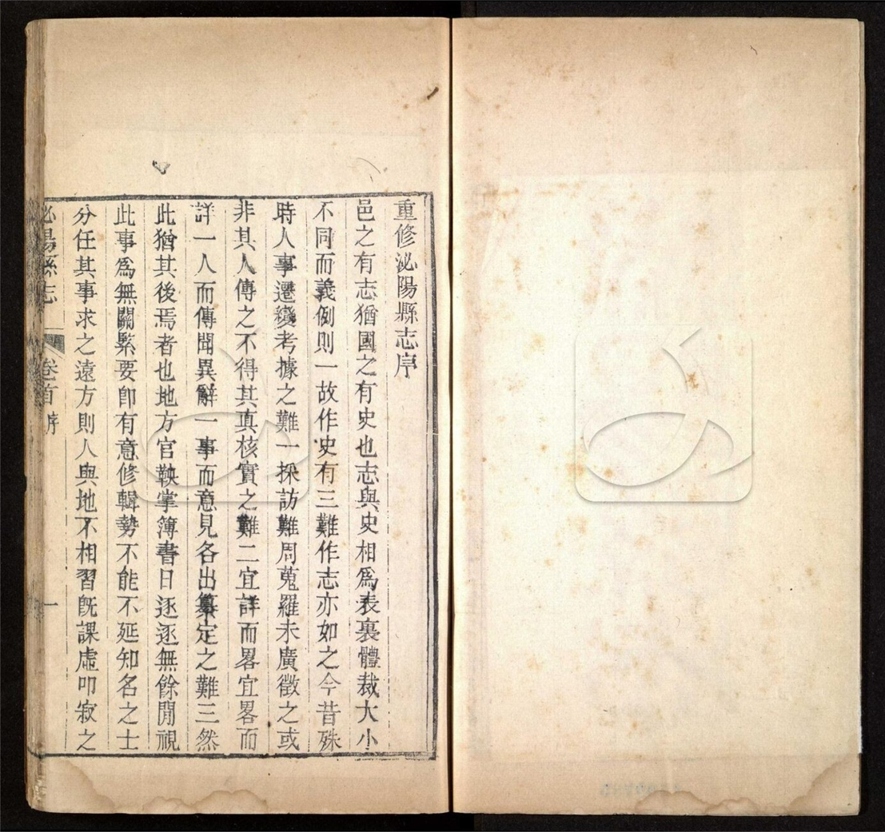 重修泌陽縣志序
邑之有志猶國之有史也志與史相爲表裏體裁大小
不同而義例則一故作史有三難作志亦如之今昔殊
時人事遷變考據之難一採訪難周蒐羅未廣徵之或
非其人傳之不得其真核實之難二宜詳而畧宜畧而
詳一人而傳聞異辭一事而意見各出纂定之難三然
此猶其後焉者也地方官鞅掌簿書日逐逐無餘閒視
此事爲無關緊要卽有意修輯勢不能不延知名之士
分任其事求之遠方則人與地不相習旣課虛叩寂之
泌陽縣志 卷首 序 一